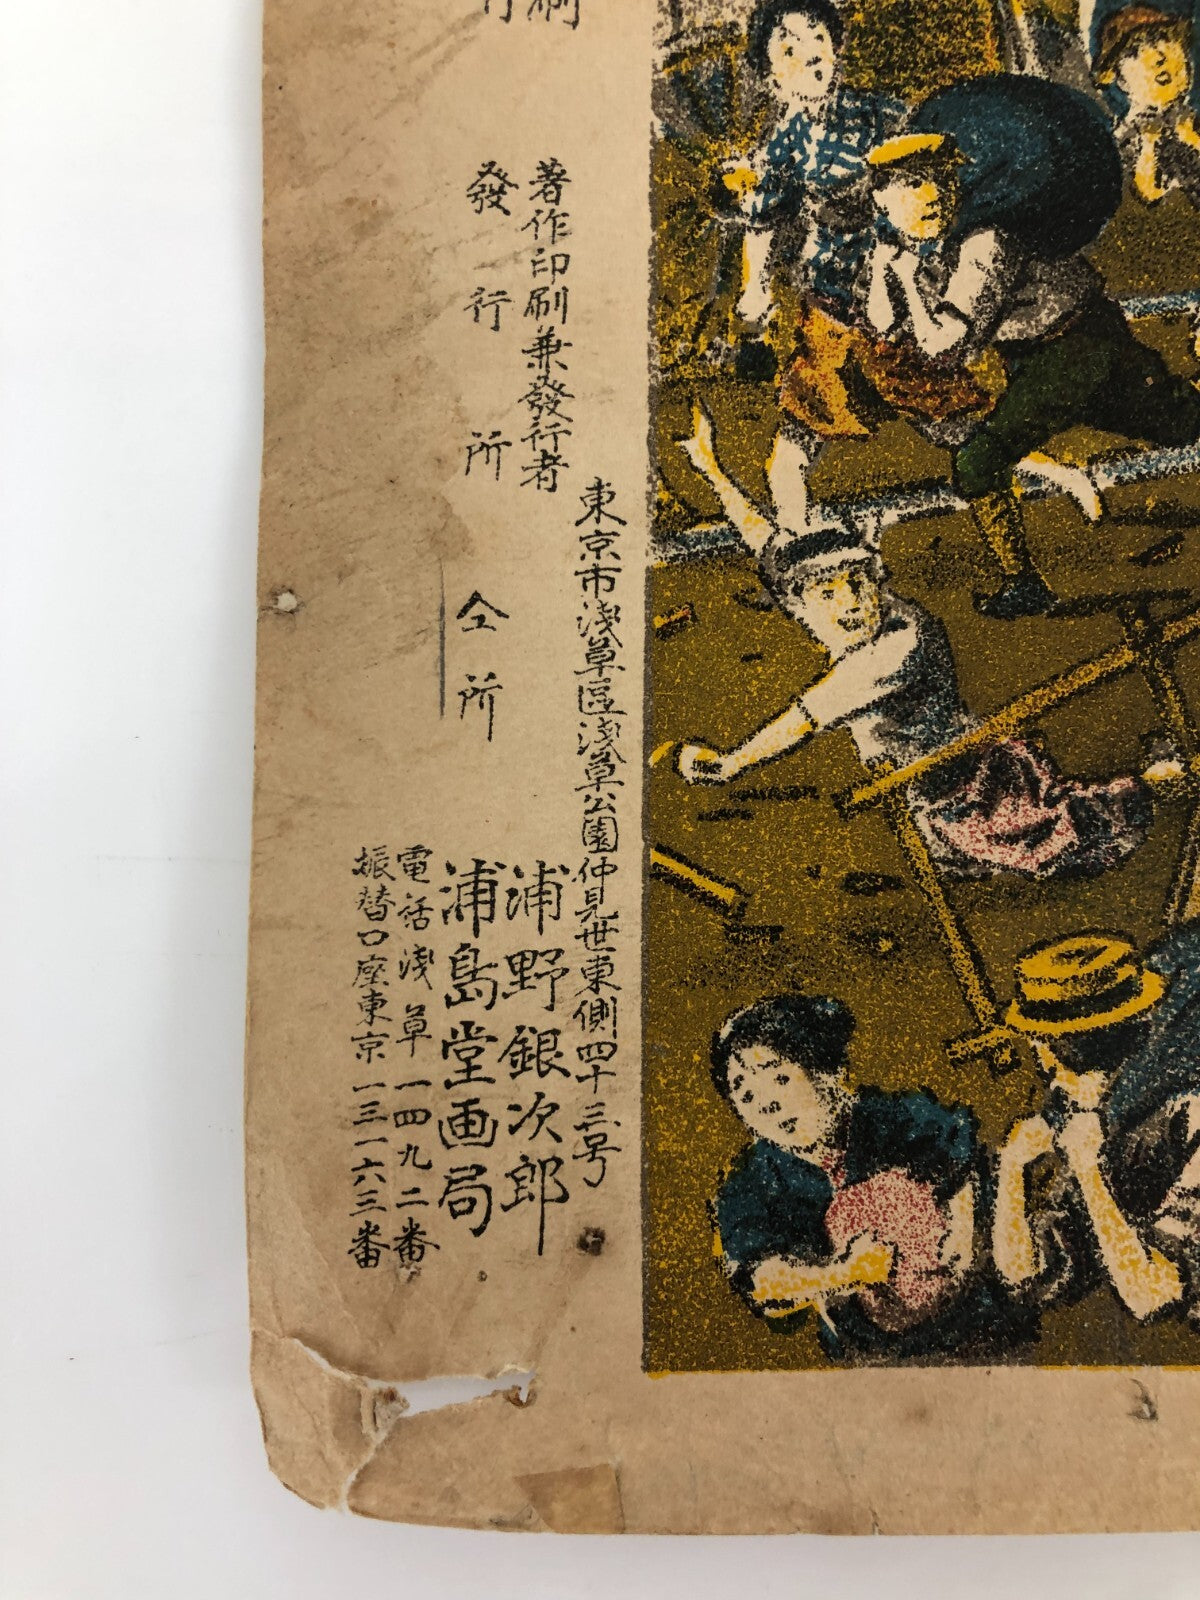 刷
行
著作印刷兼發行者
東京市淺草區淺草公園仲見世東側四十三号
浦野銀次郎
發行所
仝所
浦島堂画局
電話淺草一四九二番
振替口座東京一三一六三番